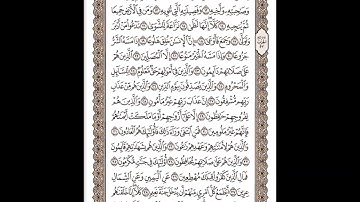 وَصَٰحِبَتِهِۦ وَأَخِيهِ ١٢ وَفَصِيلَتِهِ ٱلَّتِي تُـٔۡوِيهِ ١٣ وَمَن فِي ٱلۡأَرۡضِ جَمِيعٗا
ثُمَّ يُنجِيهِ ١٤ كَلَّآۖ إِنَّهَا لَظَىٰ ١٥ نَزَّاعَةٗ لِّلشَّوَىٰ ١٦ تَدۡعُواْ مَنۡ أَدۡبَرَ
وَتَوَلَّىٰ ١٧ وَجَمَعَ فَأَوۡعَىٰٓ ١٨ ۞ إِنَّ ٱلۡإِنسَٰنَ خُلِقَ هَلُوعًا ١٩ إِذَا مَسَّهُ ٱلشَّرُّ
جَزُوعٗا ٢٠ وَإِذَا مَسَّهُ ٱلۡخَيۡرُ مَنُوعًا ٢١ إِلَّا ٱلۡمُصَلِّينَ ٢٢ ٱلَّذِينَ هُمۡ
عَلَىٰ صَلَاتِهِمۡ دَآئِمُونَ ٢٣ وَٱلَّذِينَ فِيٓ أَمۡوَٰلِهِمۡ حَقّٞ مَّعۡلُومٞ ٢٤ لِّلسَّآئِلِ
وَٱلۡمَحۡرُومِ ٢٥ وَٱلَّذِينَ يُصَدِّقُونَ بِيَوۡمِ ٱلدِّينِ ٢٦ وَٱلَّذِينَ هُم مِّنۡ عَذَابِ
رَبِّهِم مُّشۡفِقُونَ ٢٧ إِنَّ عَذَابَ رَبِّهِمۡ غَيۡرُ مَأۡمُونٖ ٢٨ وَٱلَّذِينَ هُمۡ
لِفُرُوجِهِمۡ حَٰفِظُونَ ٢٩ إِلَّا عَلَىٰٓ أَزۡوَٰجِهِمۡ أَوۡ مَا مَلَكَتۡ أَيۡمَٰنُهُمۡ
فَإِنَّهُمۡ غَيۡرُ مَلُومِينَ ٣٠ فَمَنِ ٱبۡتَغَىٰ وَرَآءَ ذَٰلِكَ فَأُوْلَٰٓئِكَ هُمُ ٱلۡعَادُونَ ٣١
وَٱلَّذِينَ هُمۡ لِأَمَٰنَٰتِهِمۡ وَعَهۡدِهِمۡ رَٰعُونَ ٣٢ وَٱلَّذِينَ هُم بِشَهَٰدَٰتِهِمۡ قَآئِمُونَ
٣٣ وَٱلَّذِينَ هُمۡ عَلَىٰ صَلَاتِهِمۡ يُحَافِظُونَ ٣٤ أُوْلَٰٓئِكَ فِي جَنَّٰتٖ مُّكۡرَمُونَ ٣٥
فَمَالِ ٱلَّذِينَ كَفَرُواْ قِبَلَكَ مُهۡطِعِينَ ٣٦ عَنِ ٱلۡيَمِينِ وَعَنِ ٱلشِّمَالِ
عِزِينَ ٣٧ أَيَطۡمَعُ كُلُّ ٱمۡرِيٕٖ مِّنۡهُمۡ أَن يُدۡخَلَ جَنَّةَ نَعِيمٖ ٣٨ كَلَّآۖ إِنَّا خَلَقۡنَٰهُم